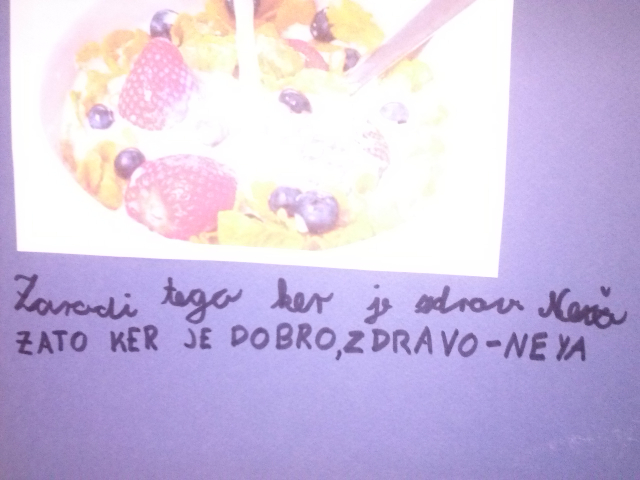 Zaradi tega ker je zdrav Neža
ZATO KER JE DOBRO, ZDRAVO-NEYA